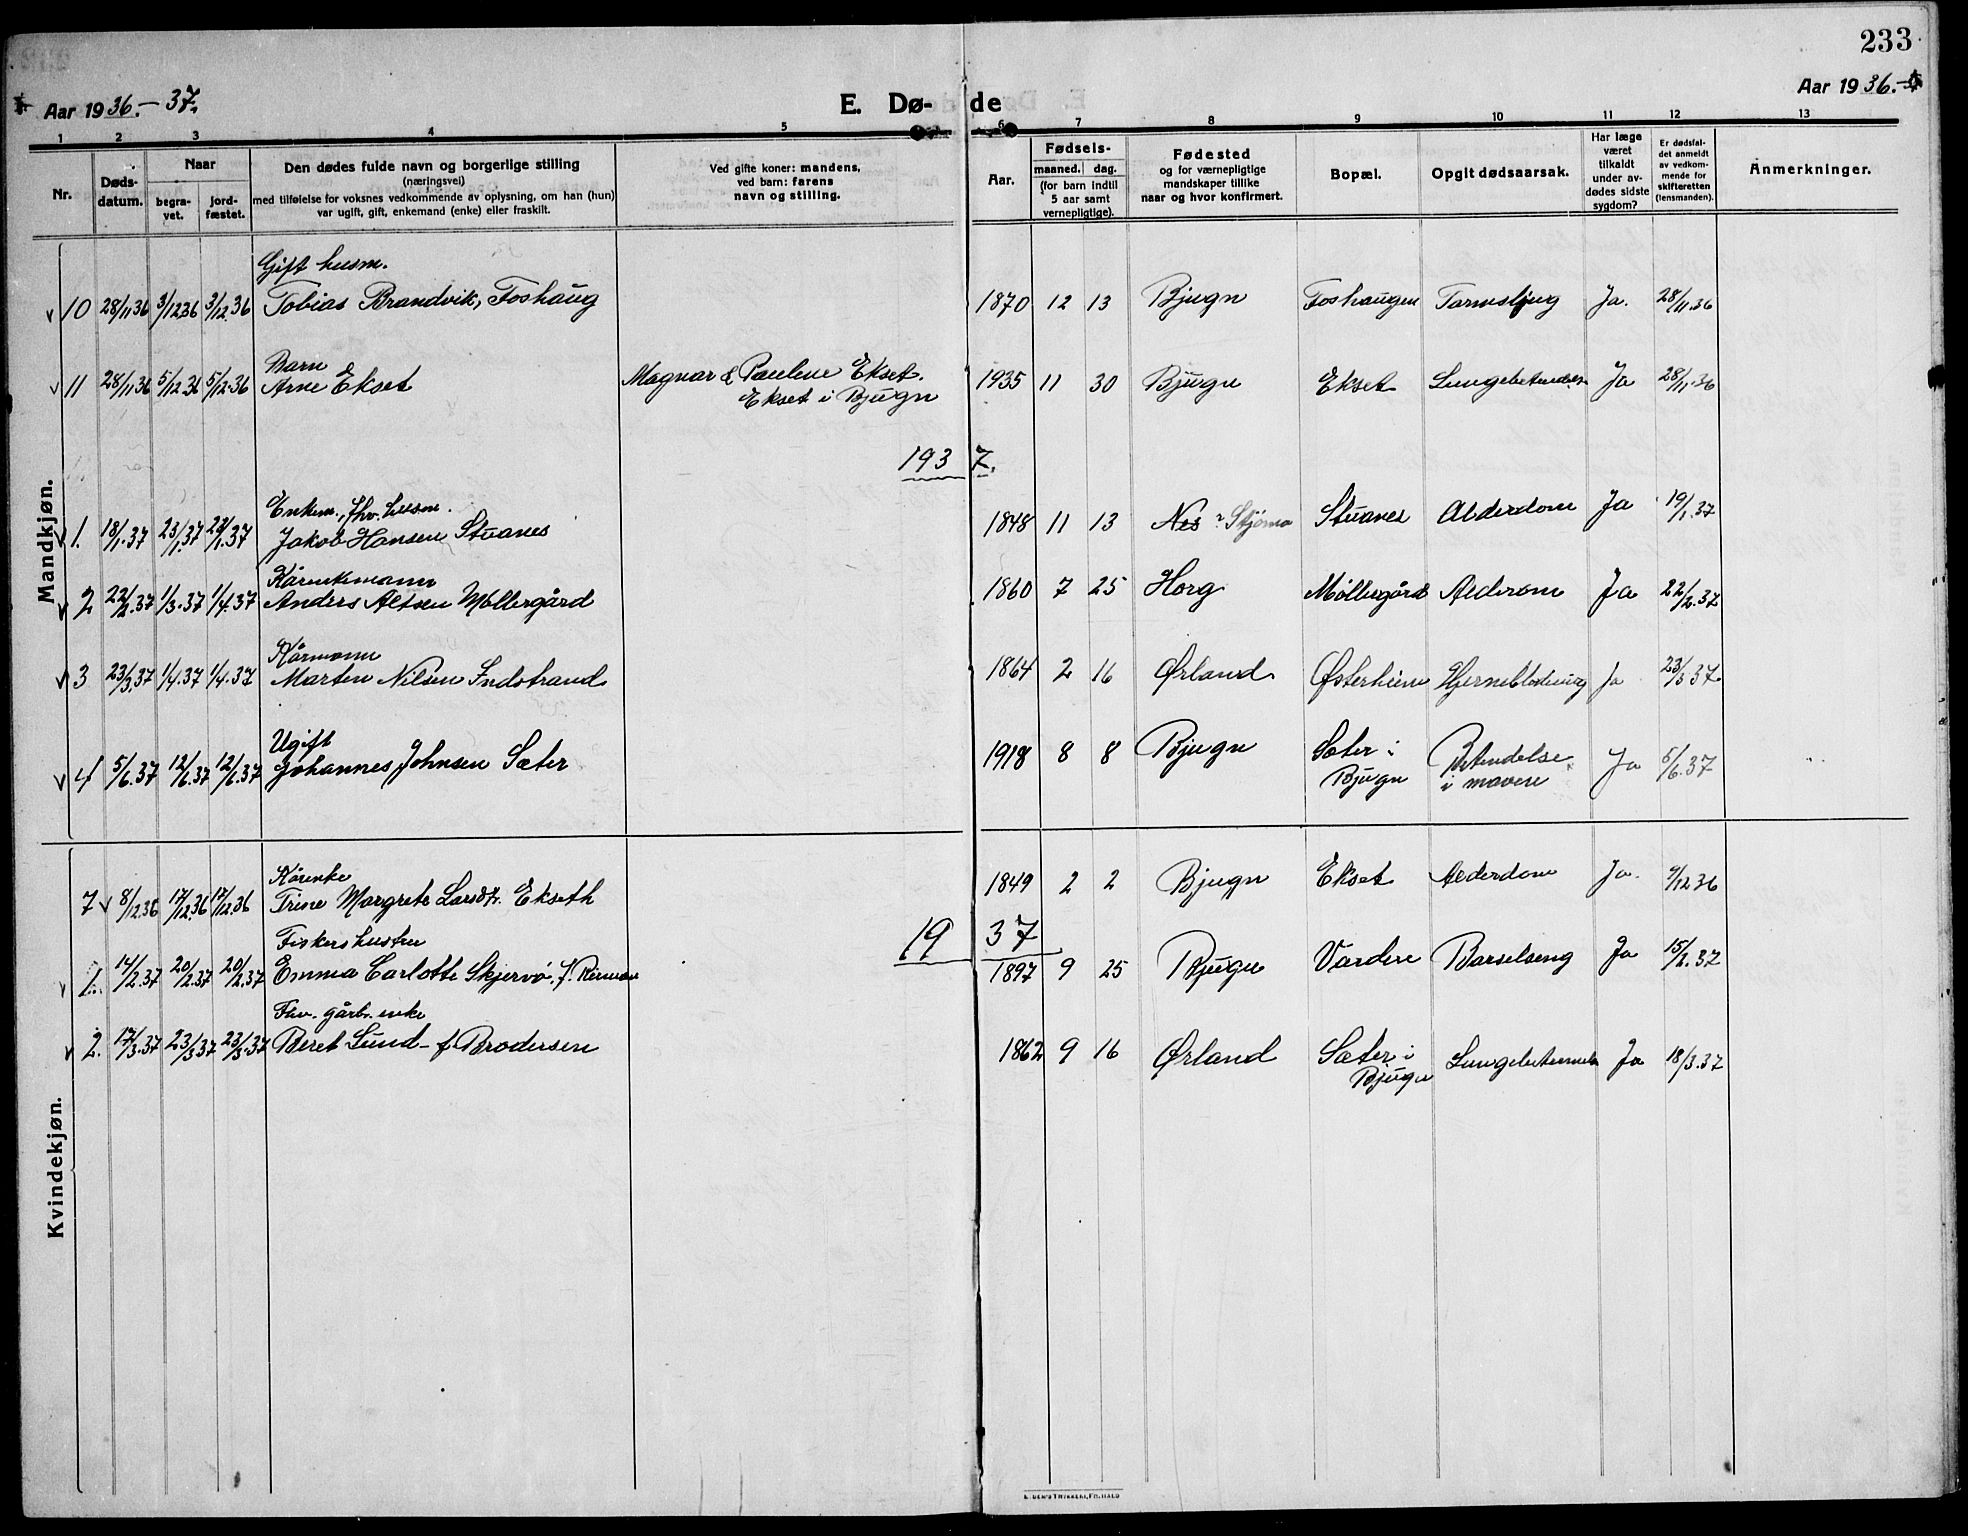 233
Aar 1936.-37. E. Dø- de Aar 1936.-
1 2 3 4 5 6 7 8 9 10 11 12 13
Nr. Døds-datum. Naar begra-vet. jord-fæstet. Den dødes fulde navn og borgerlige stilling (næringsvei) med tilføielse for voksnes vedkommende av oplysning, om han (hun) var ugift, gift, enkemand (enke) eller fraskilt. Ved gifte koner: mandens, ved barn: farens navn og stilling. Aar. Fødsels- maaned. dag. (for barn indtil 5 aar samt vernepligtige). Fødested og for værnepligtige mandskaper tillike naar og hvor konfirmert. Bopæl. Opgit dødsaarsak. Har læge været tilkaldt under av-dødes sidste sygdom? Er dødsfal-det anmeldt av vedkom-mende for skifteretten (lensmanden). Anmerkninger.
Mandkjøn.
Gift husm.
10 28/11 36 3/12 36 3/12.36 Tobias Brandvik, Foshaug 1870 12 13 Bjugn Foshaugen Tarmslyng Ja. 28/11.36
Barn
11 28/11 36 5/12.36 5/12.36 Arne Ekset Magnar & Pauline Ekset. 1935 11 30 Bjugn Ekset Ja 28/11.36
Ekset i Bjugn
1937.
Enkem., fhv. husm.
1. 18/1.37 23/1.37 23/1.37 Jakob Hansen Stuanes 1848 11 13 Nes ? Stjørna Stuanes Alderdom Ja 19/1.37
Kårenkemann
2 22/2.37 1/3.37 1/4.37 Anders Altsen Møllergård 1860 7 25 Horg Møllegård Alderom Ja 22/2.37
Kårmann
3 23/3.37 1/4.37 1/4.37 Marten Nilsen Indstrand 1864 2 16 Ørland Østerheim Ja 23/3 37.
Ugift
4 5/6.37 12/6.37 12/6.37 Johannes Johnsen Sæter 1918 8 8 Bjugn Sæter i Betendelse Ja 5/6.37
Bjugn i maven
Kvindekjøn.
Kårenke
7 8/12.36 17/12.36 17/12.36 Trine Margrete Larsdtr. Ekseth 1849 2 2 Bjugn Ekset Alderdom Ja. 9/12 36
1937
Fiskers hustru
1. 14/2.37 20/2.37 20/2.37 Emma Carlotte Skjervø, f. 1897 9 25 Bjugn Vardere Barselseng Ja 15/2.37
Fhv. gårbr. enke
2. 17/3.37 23/3 37 23/3.37 Beret Lund - f. Brodersen 1862 9 16 Ørland Sæter i Ja 18/3.37
Bjugn